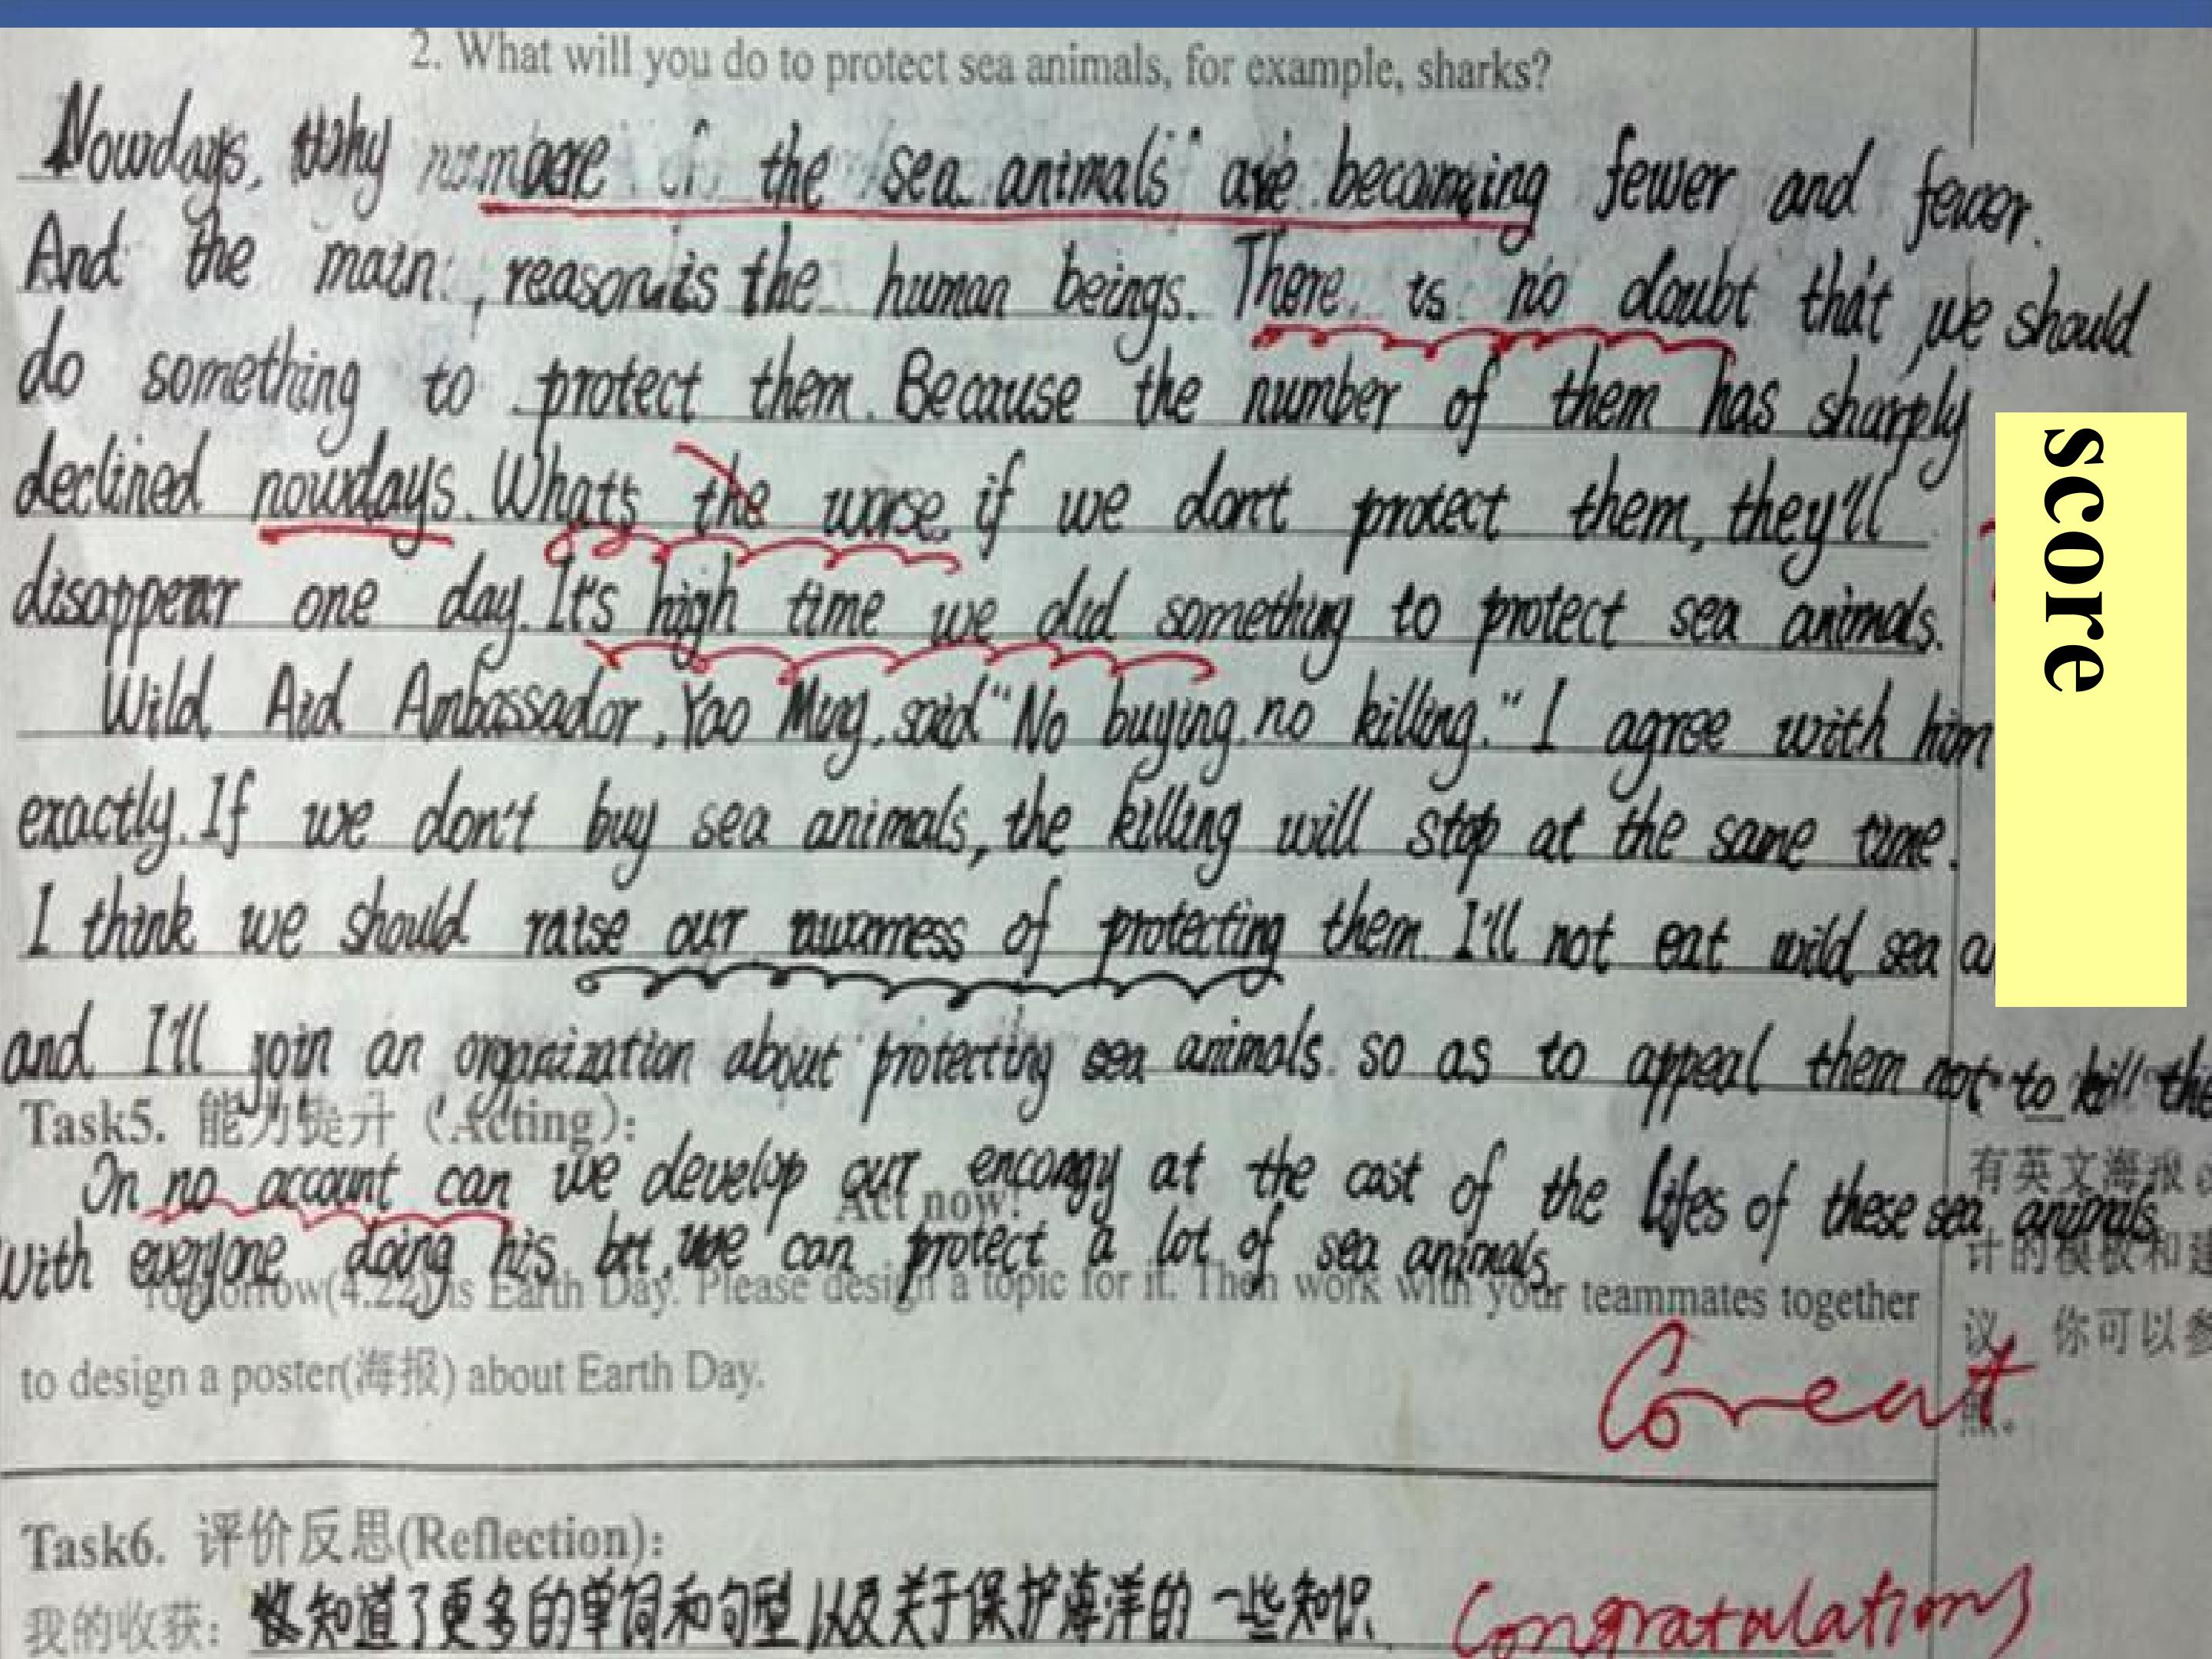 2. What will you do to protect sea animals, for example, sharks?
Nowdays, Why are the sea animals are becoming fewer and fewer.
And the main, reason is the human beings. There is no doubt that, we should
do something to protect them. Because the number of them has sharply
declined nowdays. What's the worse, if we don't protect them, they'll
disappear one day. It's high time we did something to protect sea animals.
Wild Aid Ambassador, Yao Ming, said "No buying, no killing." I agree with him
exactly. If we don't buy sea animals, the killing will stop at the same time.
I think we should raise our awarness of protecting them. I'll not eat wild sea
and I'll join an organization about protecting sea animals. so as to appeal them not to kill
Task5. 能力提升 (Acting):
In no account can we develop our at the cost of the lifes of these sea animals
Act now!
With everyone doing his bit, we can protect a lot of sea animals.
Tomorrow(4.22) is Earth Day. Please design a topic for it. Then work with your teammates together
to design a poster(海报) about Earth Day.
有英文海报
计的模板和建
议, 你可以参
照。
Great
Task6. 评价反思(Reflection):
我的收获: 知道了更多的单词和句型,以及关于保护海洋的一些知识.
Congratulations
score